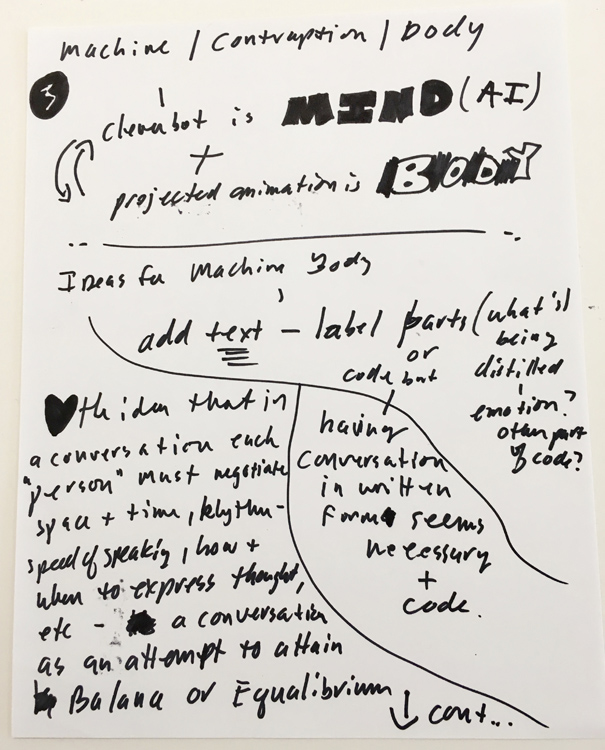 machine / Contraption / body
3
cleverbot is MIND (AI)
+
projected animation is BODY
Ideas for Machine Body
add text - label parts (what's
being
distilled
emotion?
other part
of code?
or
code but
♥ th idea that in
a conversation each
"person" must negotiate
space + time, rhythm -
speed of speaking, how +
when to express thought,
etc - a conversation
as an attempt to attain
Balance or Equalibrium
having
Conversation
in written
form seems
necessary
+
code.
↓ cont...